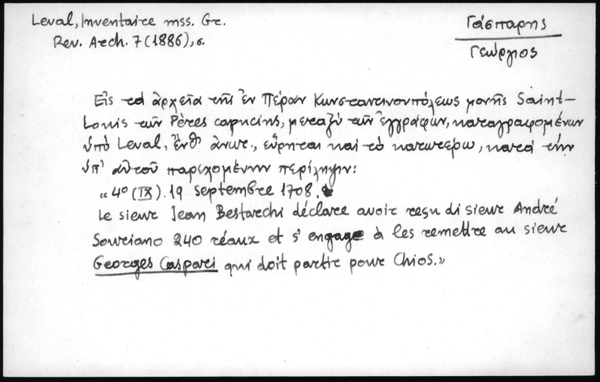 Leval, Inventaire mss. Gr.
Rev. Arch. 7 (1886), 6.
Γάσπαρης
Γεώργιος
Εἰς τὰ ἀρχεῖα τῆς ἐν Πέραν Κωνσταντινουπόλεως μονῆς Saint-
Louis τῶν Pères capucins, μεταξὺ τῶν ἐγγράφων, καταγραφομένων
ὑπὸ Leval, ἔνθ' ἀνωτ., εὕρηται καὶ τὸ κατωτέρω, κατὰ τὴν
ὑπ' αὐτοῦ παρεχομένην περίληψιν:
"4º (IX). 19 septembre 1708.
Le sieur Jean Bestarchi déclare avoir reçu di sieur André
Souriano 240 réaux et s'engage à les remettre au sieur
Georges Caspari qui doit partir pour Chios."